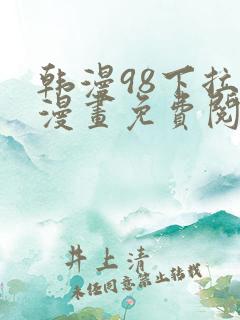 韩漫98下拉
漫畫免費閱
井上清
未经同意禁止转载